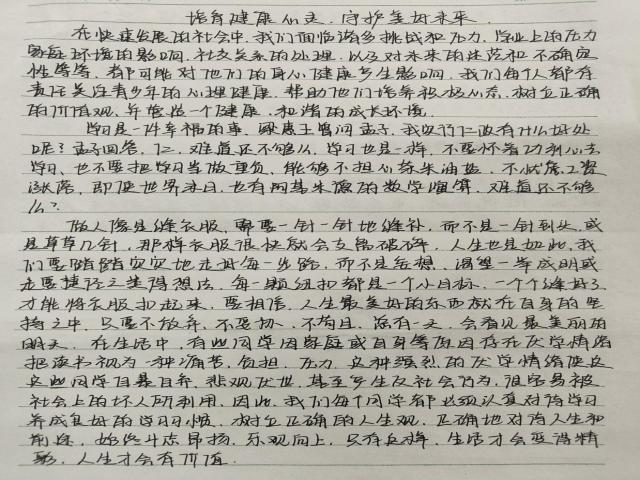 培育健康心灵，守护美好未来
在快速发展的社会中，我们面临诸多挑战和压力，学业上的压力
家庭环境的影响，社交关系的处理，以及对未来的迷茫和不确定
性等等，都可能对他们的身心健康产生影响，我们每个人都有
责任关注青少年的心理健康，帮助他们培养积极心态，树立正确
的价值观，并营造一个健康、和谐的成长环境。
学习是一件幸福的事，梁惠王曾问孟子，我实行仁政有什么好处
呢？孟子回答，仁，难道还不够么，学习也是一样，不要怀着功利心去
学习，也不要把学习当做重负，能够不担心柴米油盐，不忧房工资
涨落，即便世界末日，也有闲暇来做的数学演算，难道还不够
么？
做人像是缝衣服，需要一针一针地缝补，而不是一针到头，或
是草草几针，那样衣服很快就会支离破碎，人生也是如此，我
们要踏踏实实地走好每一步路，而不是妄想、渴望一举成明或
走要捷径之类得想法，每一颗纽扣都是一个小目标，一个个缝好了
才能将衣服扣起来，要相信，人生最美好的东西就在自身的坚
持之中，只要不放弃，不要切，不苟且，总有一天，会看见最美丽的
明天，在生活中，有些同学因家庭或自身等原因存在厌学情绪
把读书视为一种痛苦、负担、压力，这种强烈的厌学情绪使这
这些同学自暴自弃，悲观厌世，甚至产生反社会行为，很容易被
社会上的坏人所利用，因此，我们每个同学都必须认真对待学习
养成良好的学习习惯，树立正确的人生观，正确地对待人生和
前途，始终斗志昂扬，乐观向上，只有这样，生活才会变得精
彩，人生才会有价值。